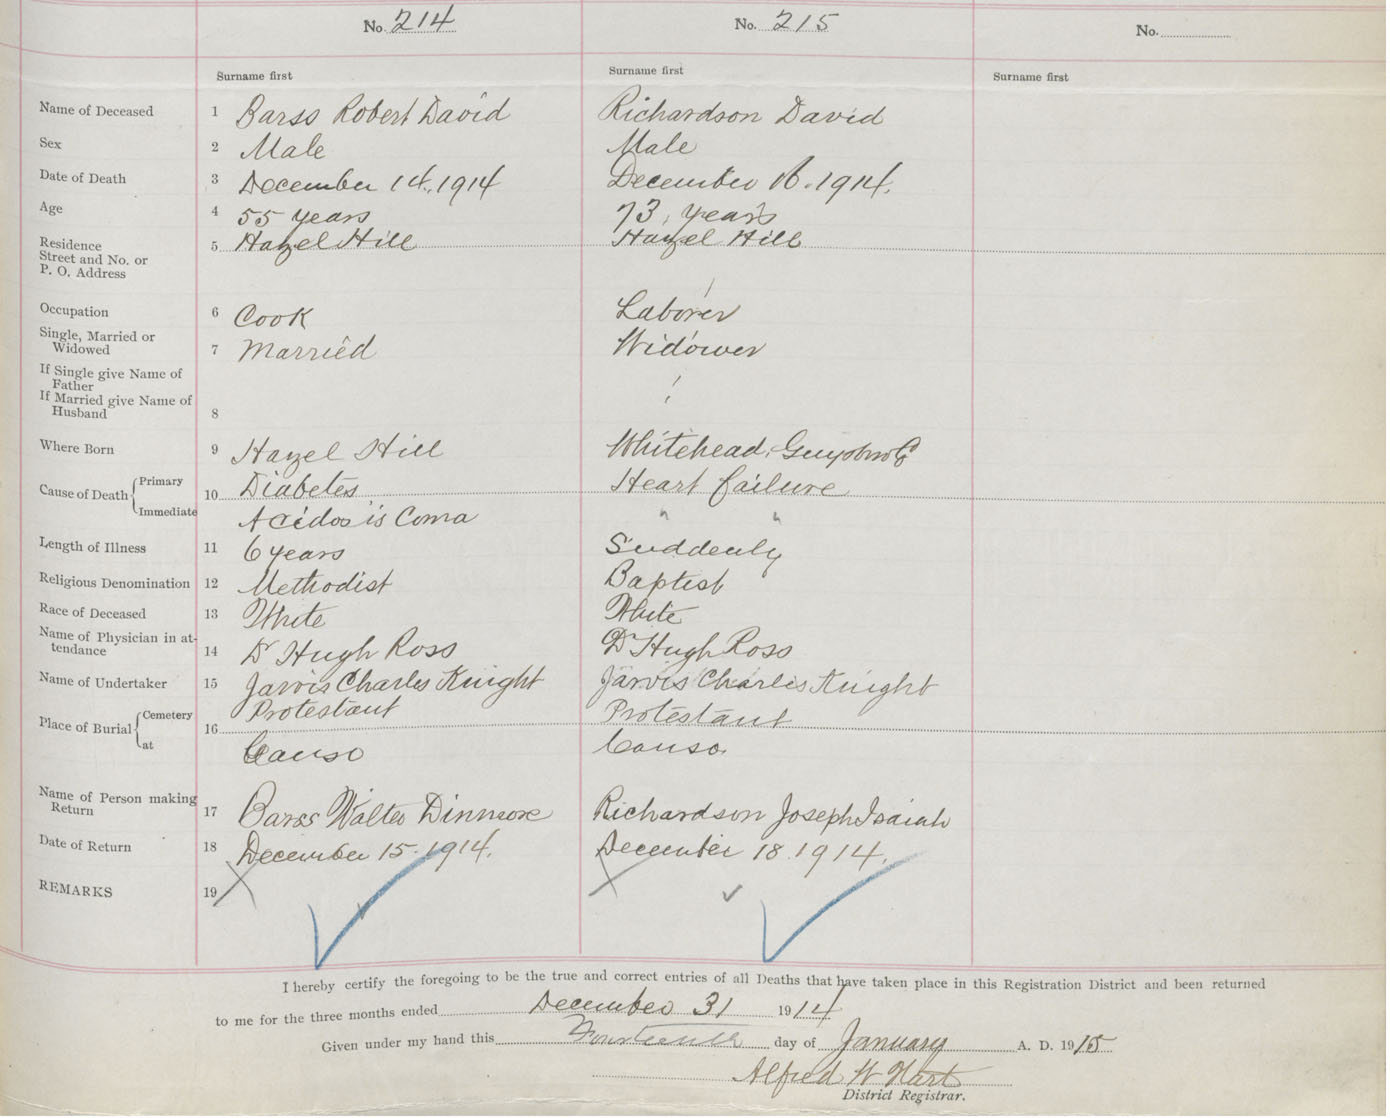 No. 214 No. 215 No.
Surname first Surname first Surname first
Name of Deceased 1 Barss Robert David Richardson David
Sex 2 Male Male
Date of Death 3 December 14, 1914 December 16. 1914.
Age 4 55 years 73, years
Residence 5 Hazel Hill Hazel Hill
Street and No. or
P. O. Address
Occupation 6 Cook Laborer
Single, Married or
Widowed 7 Married Widower
If Single give Name of
Father
If Married give Name of
Husband 8
Where Born 9 Hazel Hill Whitehead, Guysboro Co
Cause of Death { Primary 10 Diabetes Heart failure
Immediate Acidosis Coma " "
Length of Illness 11 6 years Suddenly
Religious Denomination 12 Methodist Baptist
Race of Deceased 13 White White
Name of Physician in at-
tendance 14 Dr Hugh Ross Dr Hugh Ross
Name of Undertaker 15 Jarvis Charles Knight Jarvis Charles Knight
Place of Burial { Cemetery 16 Protestant Protestant
at Canso Canso
Name of Person making
Return 17 Barss Walter Dinmore Richardson Joseph Isaiah
Date of Return 18 December 15. 1914. December 18. 1914.
REMARKS 19
I hereby certify the foregoing to be the true and correct entries of all Deaths that have taken place in this Registration District and been returned
to me for the three months ended December 31 1914
Given under my hand this Fourteenth day of January A. D. 1915
Alfred W Hart
District Registrar.